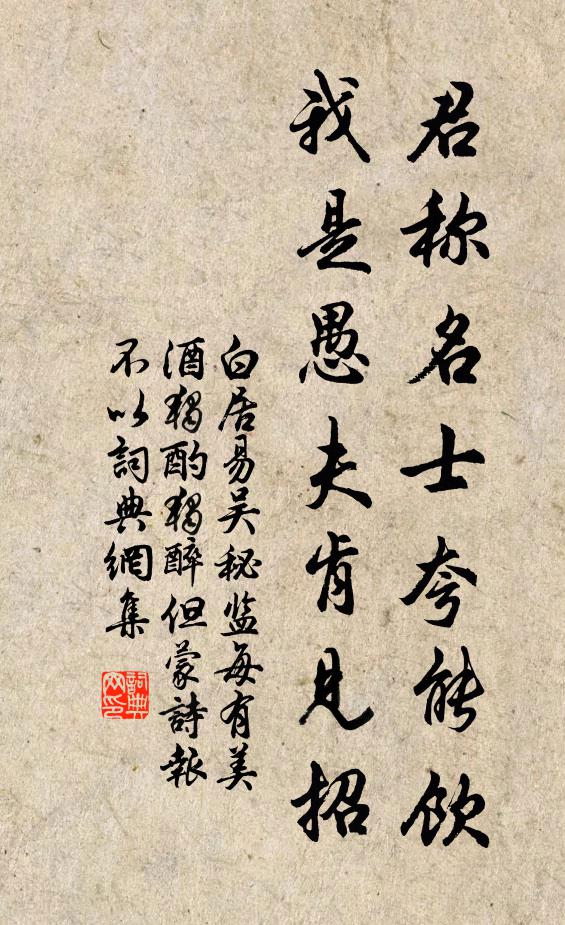 君称名士夸能饮
我是愚夫肯见招
白居易吴秘监每有美
酒獨酌獨醉但蒙詩報
不以詞典網集
詞典
网印